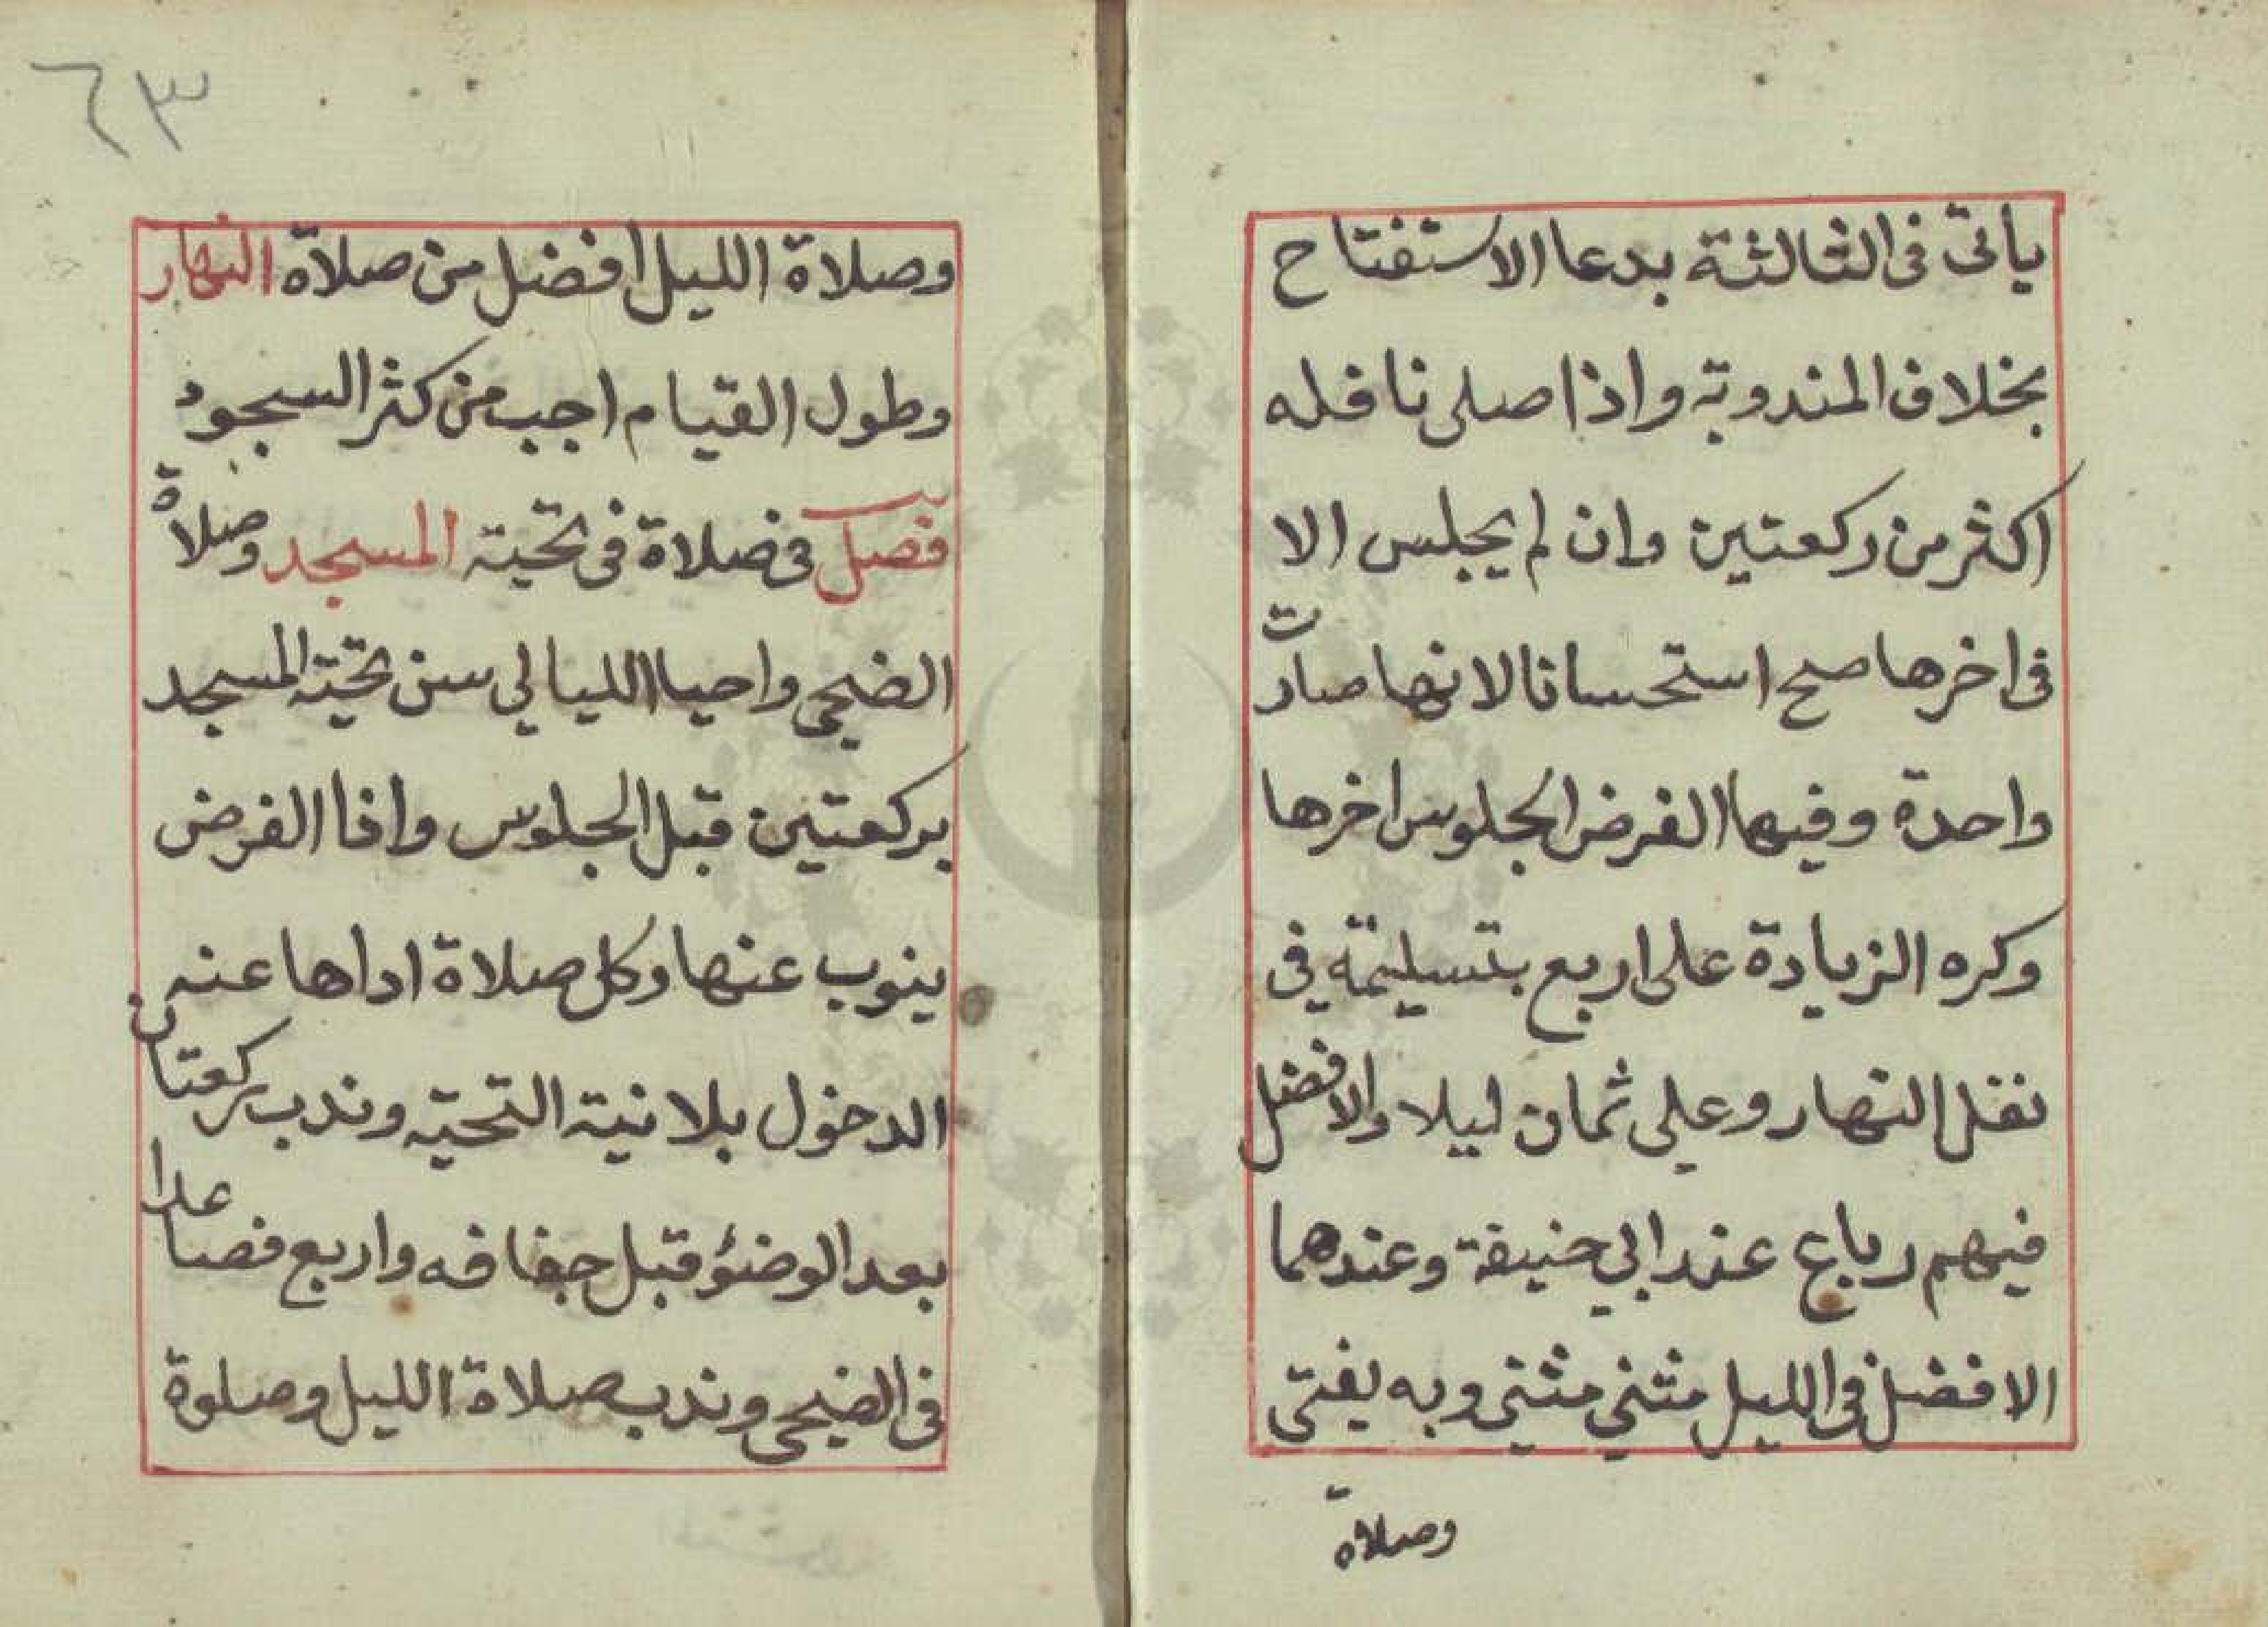 ياتى فى الثالثة بدعا الاستفتاح
بخلاف المندوبة واذا صلى نافله
اكثر من ركعتين وان لم يجلس الا
فى اخرها صح استحسانا لانها صارت
واحدة وفيها الفرض الجلوس اخرها
وكره الزيادة على اربع بتسليمة فى
نفل النهار وعلى ثمان ليلا والافضل
فيهم رباع عند ابي حنيفة وعندهما
الافضل فى الليل مثني مثني وبه يفتى
وصلاة
٦٣
وصلاة الليل افضل من صلاة النهار
وطول القيام احب من كثر السجود
فصل فى صلاة فى تحية المسجد وصلاة
الضحى واحيا الليالي سن تحية المسجد
بركعتين قبل الجلوس واذا الفرض
ينوب عنها وكل صلاة اداها عنه
الدخول بلا نية التحية وندب ركعتان
بعد الوضؤ قبل جفافه واربع فصاعدا
فى الضحى وندب صلاة الليل وصلوة